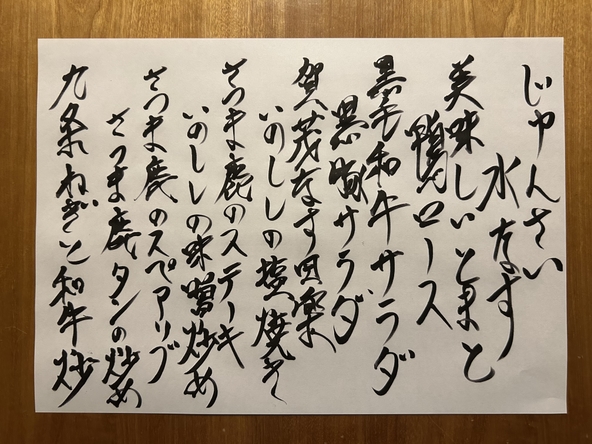 じゅんさい
水なす
美味しいとまと
鴨ロース
黒毛和牛サラダ
馬肉サラダ
賀茂なす田楽
いのししの塩焼き
さつま鹿のステーキ
いのししの味噌炒め
さつま鹿のスペアリブ
さつま鹿タンの炒め
九条ねぎと和牛炒